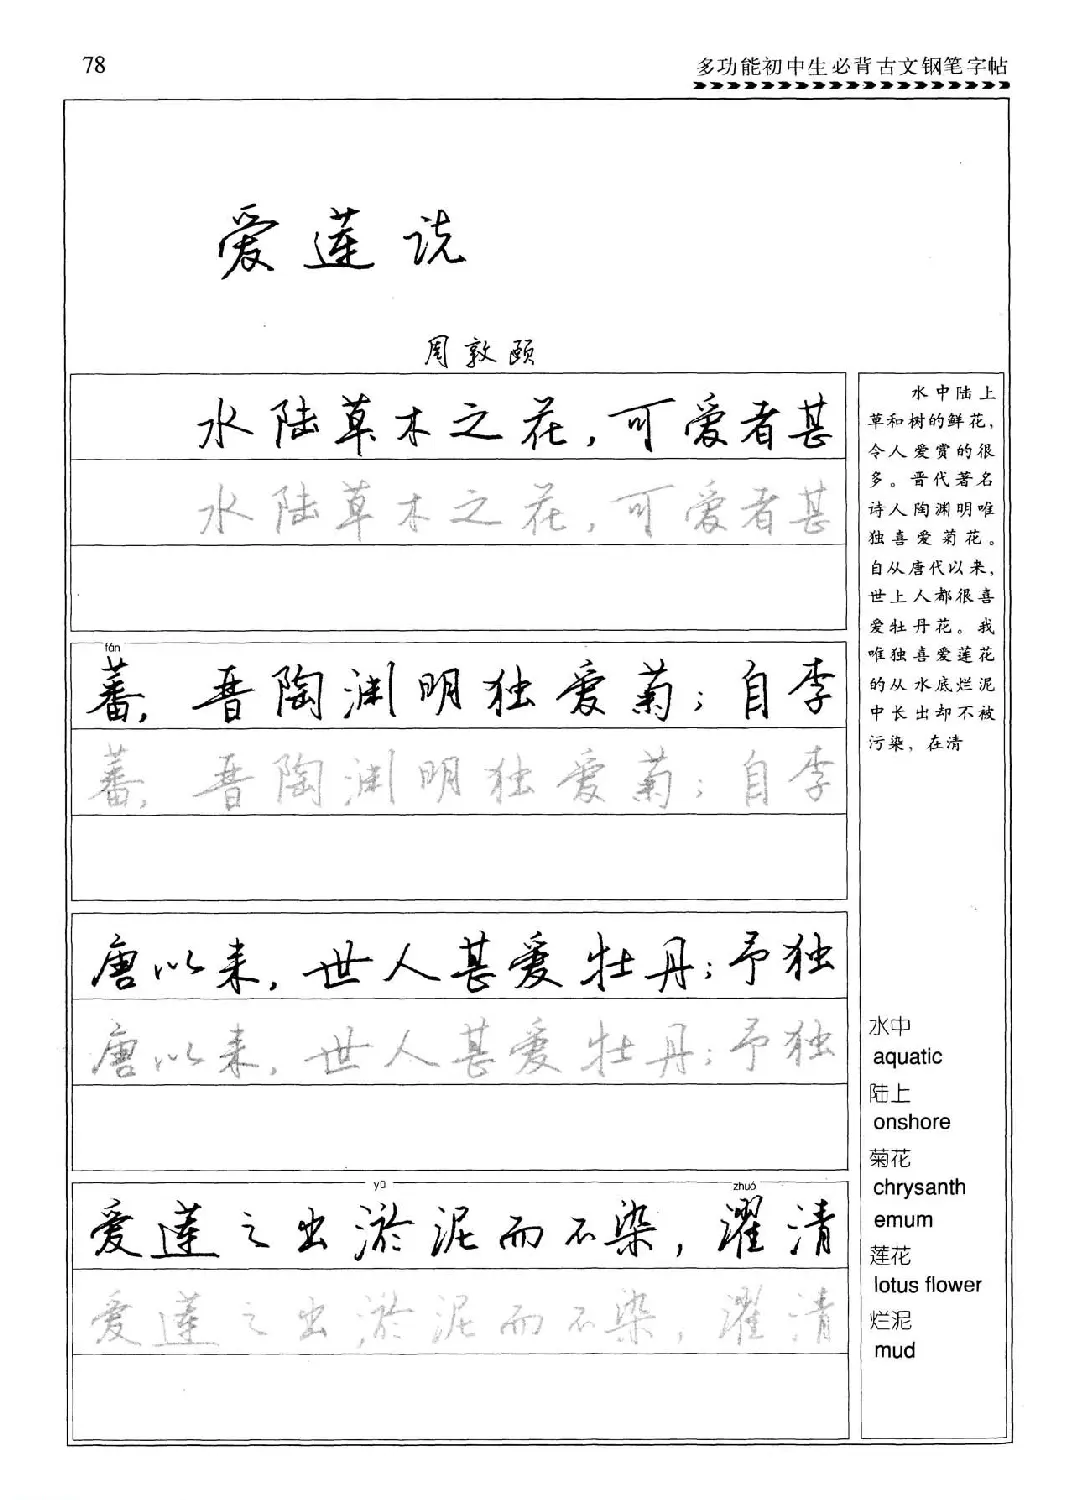 78
多功能初中生必背古文钢笔字帖
爱莲说
周敦颐
水陆草木之花，可爱者甚
水陆草木之花，可爱者甚
fán
蕃，晋陶渊明独爱菊；自李
蕃，晋陶渊明独爱菊；自李
唐以来，世人甚爱牡丹；予独
唐以来，世人甚爱牡丹；予独
yū zhuó
爱莲之出淤泥而不染，濯清
爱莲之出淤泥而不染，濯清
水中陆上
草和树的鲜花，
令人爱赏的很
多。晋代著名
诗人陶渊明唯
独喜爱菊花。
自从唐代以来，
世上人都很喜
爱牡丹花。我
唯独喜爱莲花
的从水底烂泥
中长出却不被
污染，在清
水中
aquatic
陆上
onshore
菊花
chrysanth
emum
莲花
lotus flower
烂泥
mud